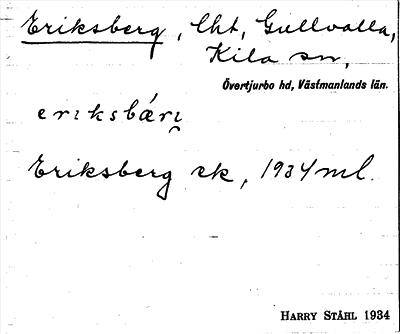 Eriksberg, lht, Gullvalla,
Kila sn,
Övertjurbo hd, Västmanlands län.
eriksbæ´rı̯
Eriksberg ek, 1934 ml.
HARRY STÅHL 1934